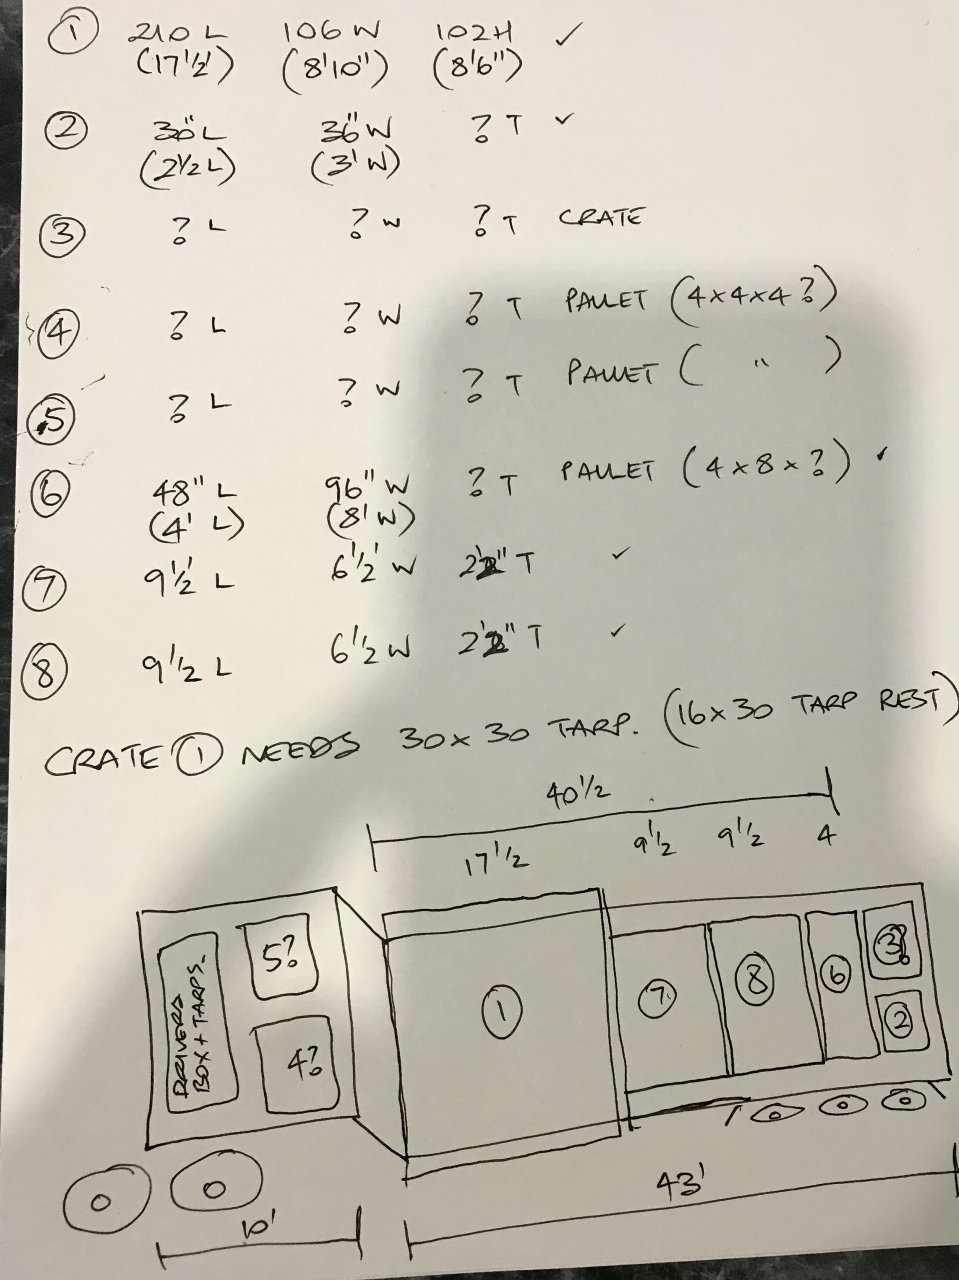 ① 210 L 106 W 102H ✓
(17'½') (8'10") (8'6")
② 30" L 36" W ? T ✓
(2½ L) (3' W)
③ ? L ? W ? T CRATE
④ ? L ? W ? T PALLET (4x4x4?)
⑤ ? L ? W ? T PALLET ( " )
⑥ 48" L 96" W ? T PALLET (4x8x?) ✓
(4' L) (8' W)
⑦ 9'½' L 6'½' W T ✓
⑧ 9'½ L 6'½ W T ✓
CRATE ① NEEDS 30x30 TARP. (16x30 TARP REST)
40½
17'½ 9'½ 9'½ 4
DRIVERS
BOX + TARPS
5?
4?
①
⑦
⑧
⑥
③?
②
10'
43'